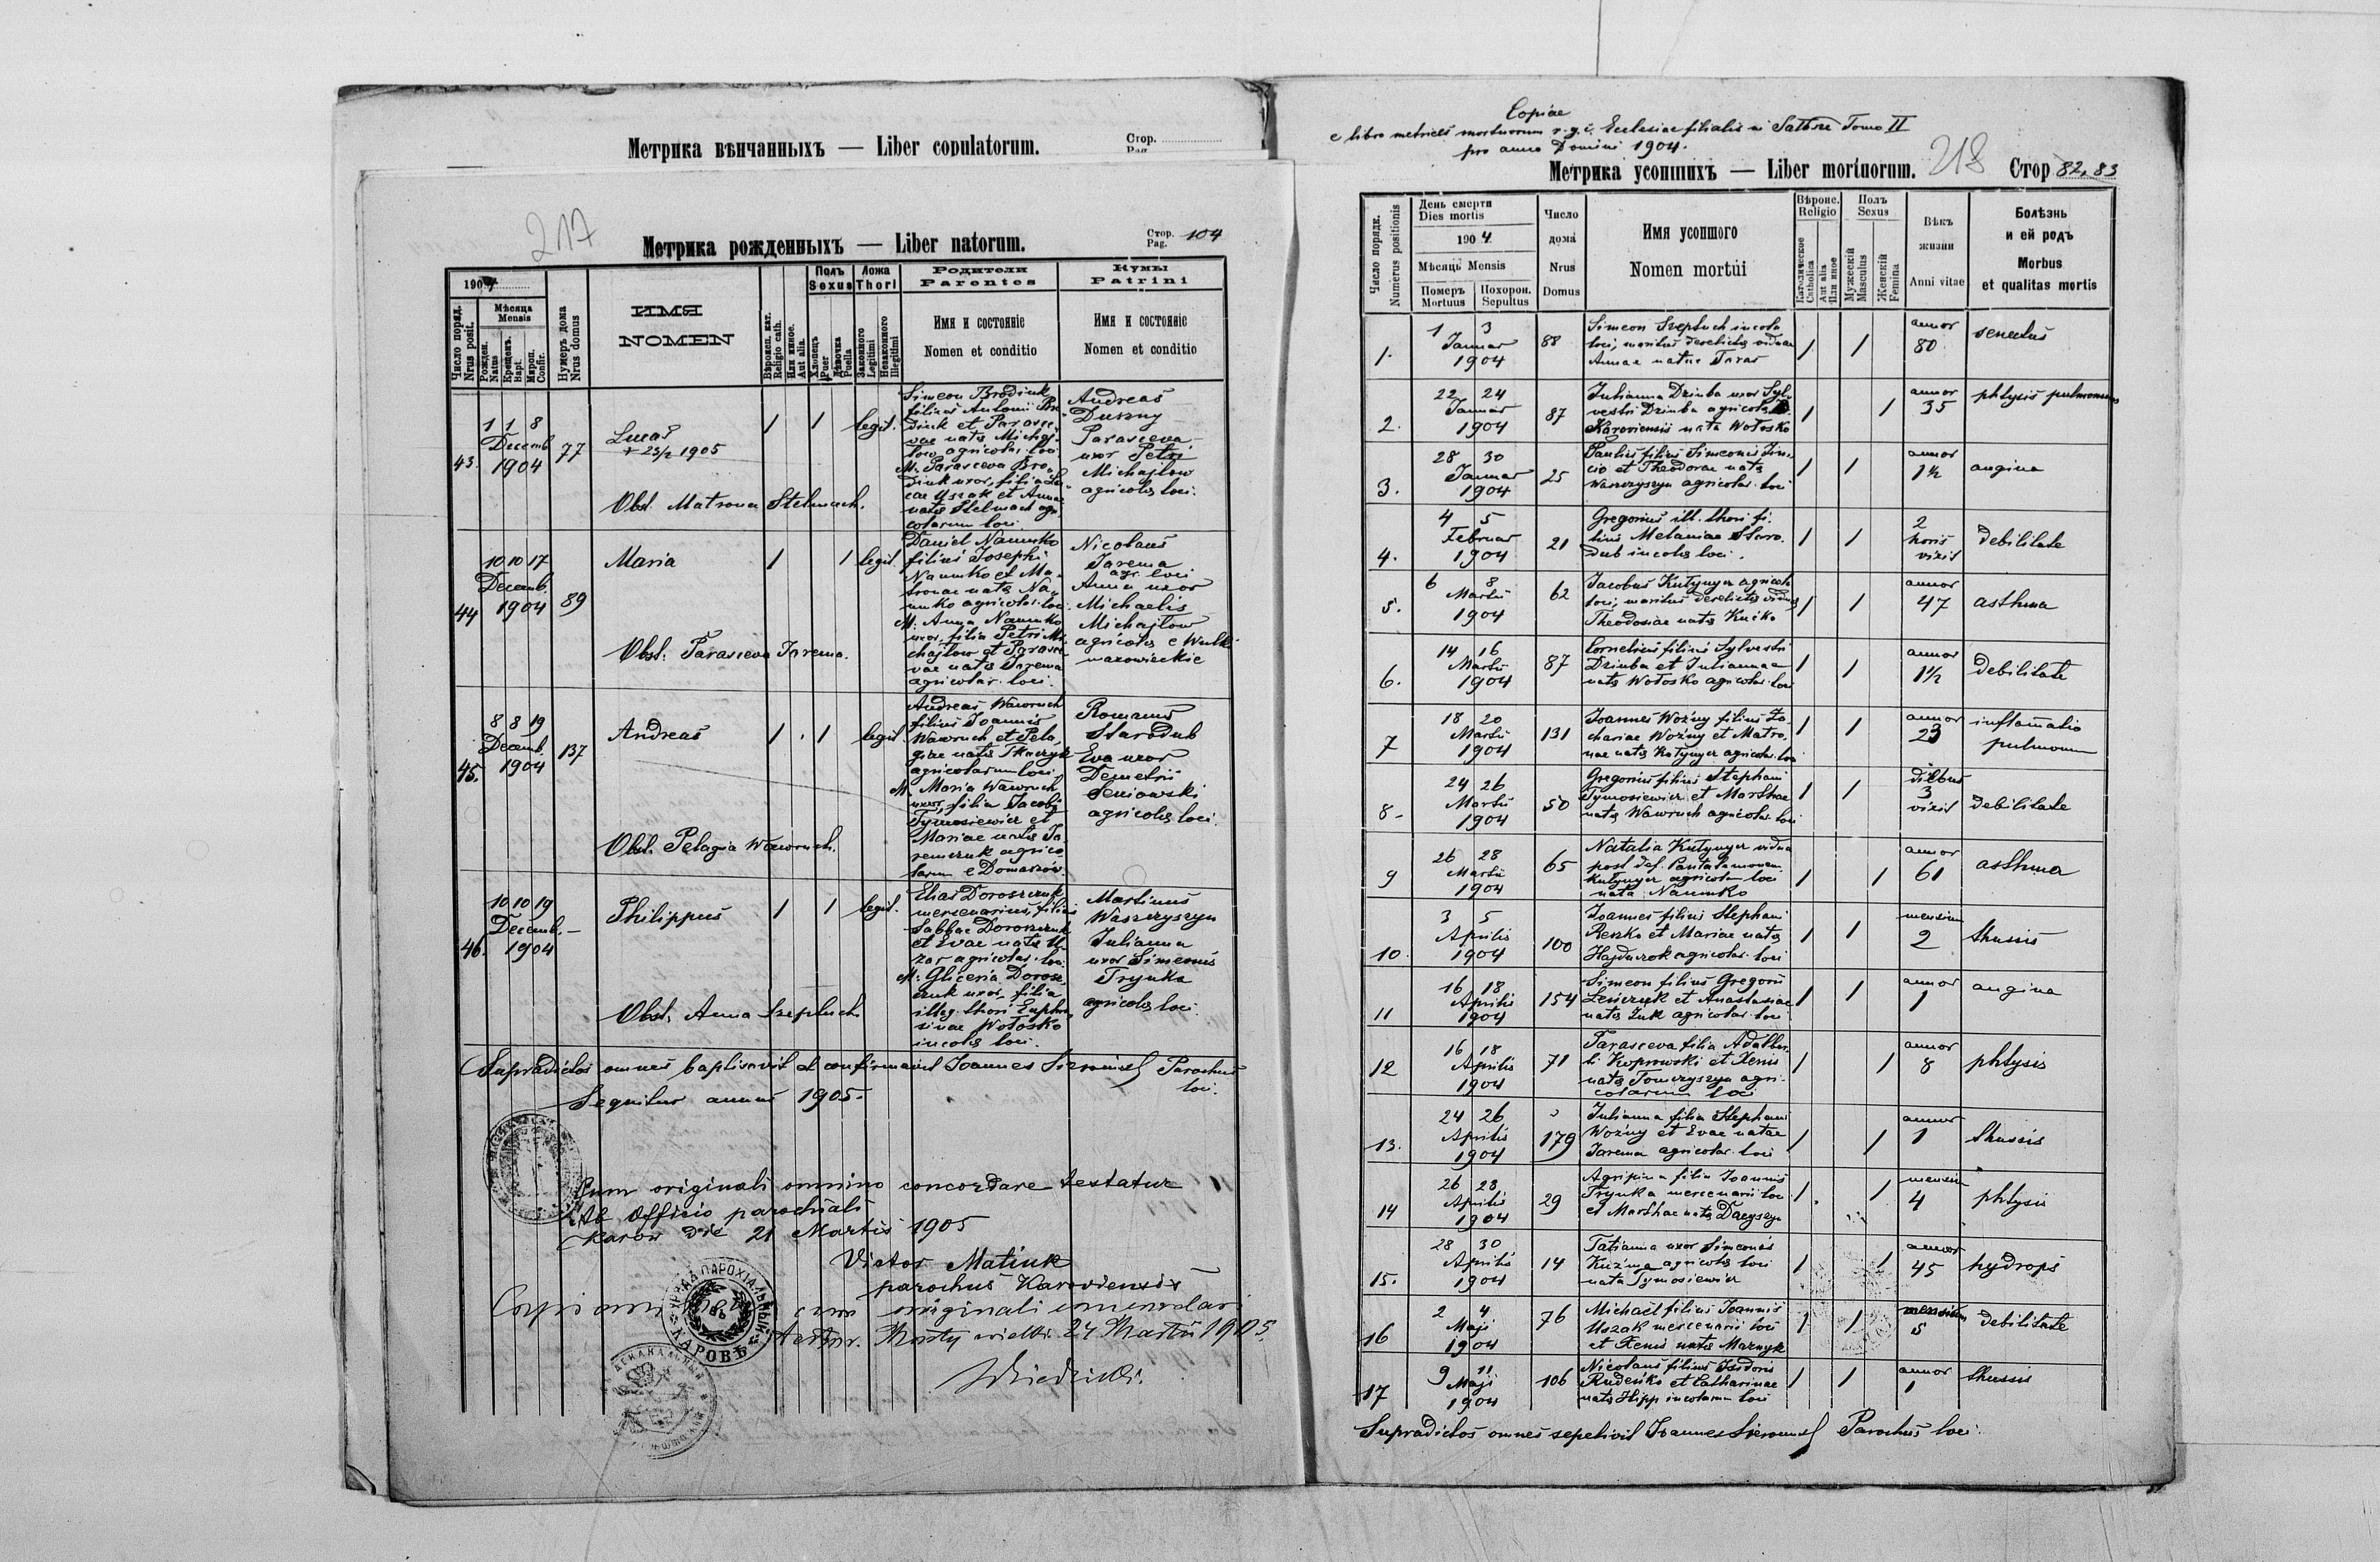 Метрика вѣнчанныхъ — Liber copulatorum.
Стор.
Pag.
217
Метрика рожденныхъ — Liber natorum.
Стор.
Pag. 104
1904
Число поряд.
Nrus posit.
Мѣсяца
Mensis
Рожден.
Natus
Крещенъ.
Bapt.
Мѵроп.
Confir.
Нумеръ дома
Nrus domus
ИМЯ
NOMEN
Вѣроисп. кат.
Religio cath.
Или иное.
Aut alia.
Полъ
Sexus
Хлопецъ
Puer
Дѣвочка
Puella
Ложа
Thori
Законного
Legitimi
Незаконного
Illegitimi
Родители
Parentes
Имя и состояніе
Nomen et conditio
Кумы
Patrini
Имя и состояніе
Nomen et conditio
43.
1 1 8
Decemb.
1904
77
Lucas
+ 23/2 1905
Obst. Matrona Stelmach.
1 1 legit.
Simeon Brodiuk
filius Antonii Bro-
diuk et Parasce-
vae nata Michaj-
low agricolar. loci
M. Parasceva Bro-
diuk uxor, filia Lu-
cae Uszak et Annae
nata Stelmach agri-
colarum loci.
Andreas
Duszny
Parasceva
uxor Petri
Michajlow
agricolae loci.
44
10 10 17
Decemb.
1904
89
Maria
Obst. Parasceva Jarema.
1 1 legit.
Daniel Naumko
filius Josephi
Naumko et Ma-
tronae nata Na-
umko agricolar. loci.
M. Anna Naumko
uxor, filia Petri Mi-
chajlow et Parasce-
vae nata Jarema
agricolar. loci.
Nicolaus
Jarema
agr. loci
Anna uxor
Michaelis
Michajlow
agricolae e Wulki
mazowieckie
45.
8 8 19
Decemb.
1904
137
Andreas
Obst. Pelagia Wawruch.
1 1 legit
Andreas Wawruch
filius Joannis
Wawruch et Pela-
giae nata Tkaczyk
agricolarum loci
M. Maria Wawruch
uxor, filia Jacobi
Tymosiewicz et
Mariae nata Ja-
remczuk agrico-
larum e Domaszów.
Romanus
Starodub
Eva uxor
Demetrii
Seniowski
agricolae loci.
46.
10 10 19
Decemb.
1904
Philippus
Obst. Anna Szeptuch
1 1 legit.
Elias Doroszczuk
mercenarius, filius
Sabbae Doroszczuk
et Evae nata
agricolar. loci
M. Gliceria Dorosz-
czuk uxor, filia
illeg. thori Euphro-
sinae Wołosko
incolae loci.
Martinus
Waszczyszyn
Julianna
uxor Simeonis
Trynka
agricolae loci.
Supradictos omnes baptisavit et confirmavit Joannes Parochus
loci.
Sequitur annus 1905.
Cum originali omnino concordare testatur
Ab Officio parochiali
Karów die 21 Martis 1905
Victor Matiuk
parochus Karoviensis
cum originali concordare
Mosty wielki 24 Martii 1905.
УРЯДЪ ПАРОХІАЛЬНЫЙ
ВЪ
КАРОВѢ
Copiae
e libro metrices mortuorum r. g. c. Ecclesiae filialis in Tomo II
pro anno Domini 1904.
218
Метрика усопшихъ — Liber mortuorum.
Стор 82, 83
Число порядк.
Numerus positionis
День смерти
Dies mortis
1904.
Мѣсяць Mensis
Померъ
Mortuus
Похорон.
Sepultus
Число
дома
Nrus
Domus
Имя усопшого
Nomen mortui
Вѣроис.
Religio
Католическое
Catholica
Aut alia
Или иное
Полъ
Sexus
Мужескій
Masculus
Женскій
Femina
Вѣкъ
жизни
Anni vitae
Болѣзнь
и ей родъ
Morbus
et qualitas mortis
1.
1 3
Januar
1904
88
Simeon Szeptuch incola
loci, maritus derelictae viduae
Annae natae Taras
1 1
annor
80
senectus
2.
22 24
Januar
1904
87
Julianna Dziuba uxor Syl-
vestri Dziuba agricolae
Karoviensis nata Wołosko
1 1
annor
35
phtysis pulmonum
3.
28 30
Januar
1904
25
Paulus filius Simeonis
et Theodorae nata
Waszczyszyn agricolar. loci
1 1
annor
1½
angina
4.
4 5
Februar
1904
21
Gregorius ill. thori fi-
lius Melaniae Staro-
dub incolae loci.
1 1
2
horis
vixit
debilitate
5.
6 8
Martii
1904
62
Jacobus Kutynyer agricola
loci, maritus derelictae viduae
Theodosiae nata Kućko
1 1
annor
47
asthma
6.
14 16
Martii
1904
87
Cornelius filius Sylvestri
Dziuba et Juliannae
nata Wołosko agricolar. loci
1 1
annor
1½
debilitate
7
18 20
Martii
1904
131
Joannes Woźny filius Za-
chariae Woźny et Matro-
nae nata Kutynyer agricolar. loci
1 1
annor
23
inflamatio
pulmonum
8.
24 26
Martii
1904
50
Gregorius filius Stephani
Tymosiewicz et Marthae
nata Wawruch agricolar. loci
1 1
diebus
3
vixit
debilitate
9
26 28
Martii
1904
65
Natalia Kutynyer vidua
post def. Pantalemonem
Kutynyer agricolam loci
nata Naumko
1 1
annor
61
asthma
10.
3 5
Aprilis
1904
100
Joannes filius Stephani
Reszko et Mariae nata
Hajduczok agricolar. loci
1 1
mensium
2
thussis
11
16 18
Aprilis
1904
154
Simeon filius Gregorii
Leńczuk et Anastasiae
nata Żuk agricolar. loci
1 1
annor
1
angina
12
16 18
Aprilis
1904
71
Parasceva filia Adalber-
ti Koprowski et Xenis
nata Tomczyszyn agri-
colarum loci
1 1
annor
8
phtysis
13.
24 26
Aprilis
1904
179
Julianna filia Stephani
Woźny et Evae natae
Jarema agricolar. loci
1 1
annor
1
thussis
14
26 28
Aprilis
1904
29
Agripina filia Joannis
Trynka mercenarii loci
et Marthae nata
1 1
mensium
4
phtysis
15.
28 30
Aprilis
1904
14
Tatianna uxor Simeonis
Kuźma agricolae loci
nata Tymosiewicz
1 1
annor
45
hydrops
16
2 4
Maji
1904
76
Michael filius Joannis
Uszak mercenarii loci
et Xenis nata Mazuryk
1 1
mensium
5
debilitate
17
9 11
Maji
1904
106
Nicolaus filius Isidoris
Rudeńko et Catharinae
nata Hipp incolarum loci
1 1
annor
1
thussis
Supradictos omnes sepelivit Joannes Parochus loci.